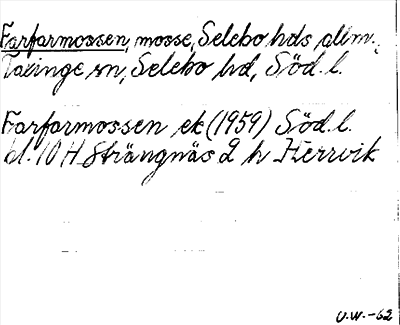 Farfarmossen, mosse, Selebo hds allm.,
Taxinge sn, Selebo hd, Söd. l.
Farfarmossen ek (1959) Söd. l.
bl. 10 H Strängnäs 2 h Herrvik
U.W.-62